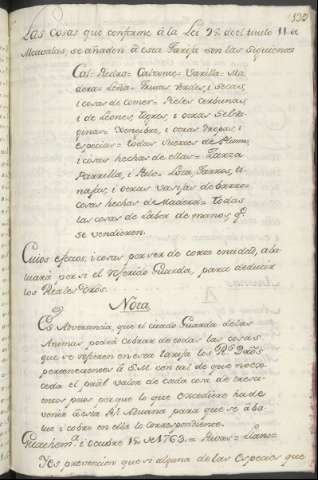 132
Las cosas que conforme â la Lei 9ª del titulo 11 de
Alcavalas, se añaden â esta Tarifa son las siguientes
Cal= Piedra= Cascote= Varilla= Ma
dera= Leña= Frutas verdes, i secas,
i cosas de comer= Pieles
i de Leones, Tigres, i otras
i otras Drogas, i
especias= todas suertes de Pluma,
i cosas hechas de ellas= Zarza
Parrilla, i Palo= Loza, Jarros, ti
najas, i otras vasijas de barro=
cosas hechas de Madera= todas
las cosas de labor de manos, qe.
se vendieren.
Cuios efectos, i cosas por ser de corta entidad, aba
luará por si el referido Guarda, para deducir
los Reales Dros.
Nota
Es Advertancia, que el citado Guarda de las
Animas podrá cobrar de todas las cosas
que se refieren en esta tarifa los Rs. Dros
pertenecientes â S.M con tal de que no ex
ceda el pral valor de cada cosa de treze
pesos pues en lo que excediere ha de
venir â esta Rl Aduana para que se âba
lue i cobre en ella lo correspondiente.
Guathema. i octubre 15 de 1763.= = Llano=
Yes prevencion que si alguna de las Especies que